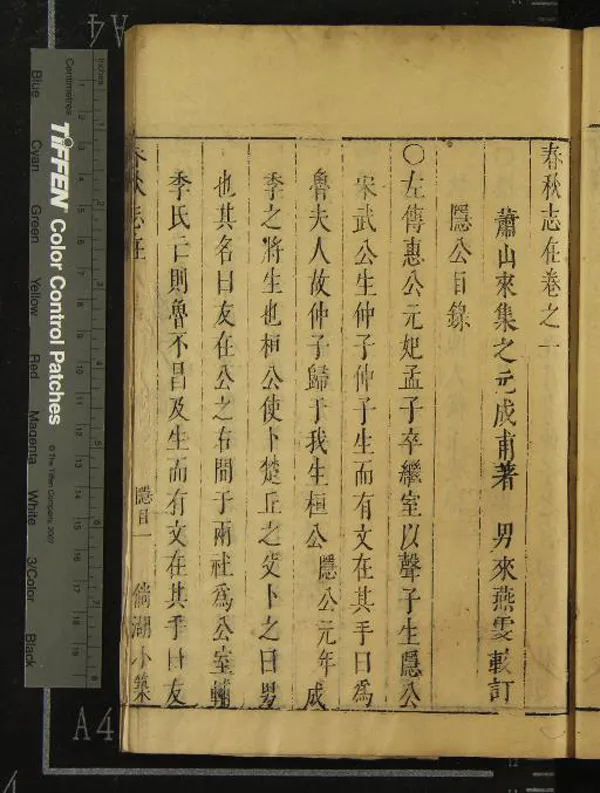 春秋志在卷之一
蕭山來集之元成甫著　男來燕雯較訂
隱公目錄
○左傳惠公元妃孟子卒繼室以聲子生隱公
宋武公生仲子仲子生而有文在其手曰爲
魯夫人故仲子歸于我生桓公　隱公元年成
季之將生也桓公使卜楚丘之父卜之曰男
也其名曰友在公之右間于兩社爲公室輔
季氏亡則魯不昌及生而有文在其手曰友
春秋志在　隱目一　倘湖小築
A4
Inches
Centimetres
TIFFEN Color Control Patches
© The Tiffen Company, 2007
Blue Cyan Green Yellow Red Magenta White 3/Color Black
A4